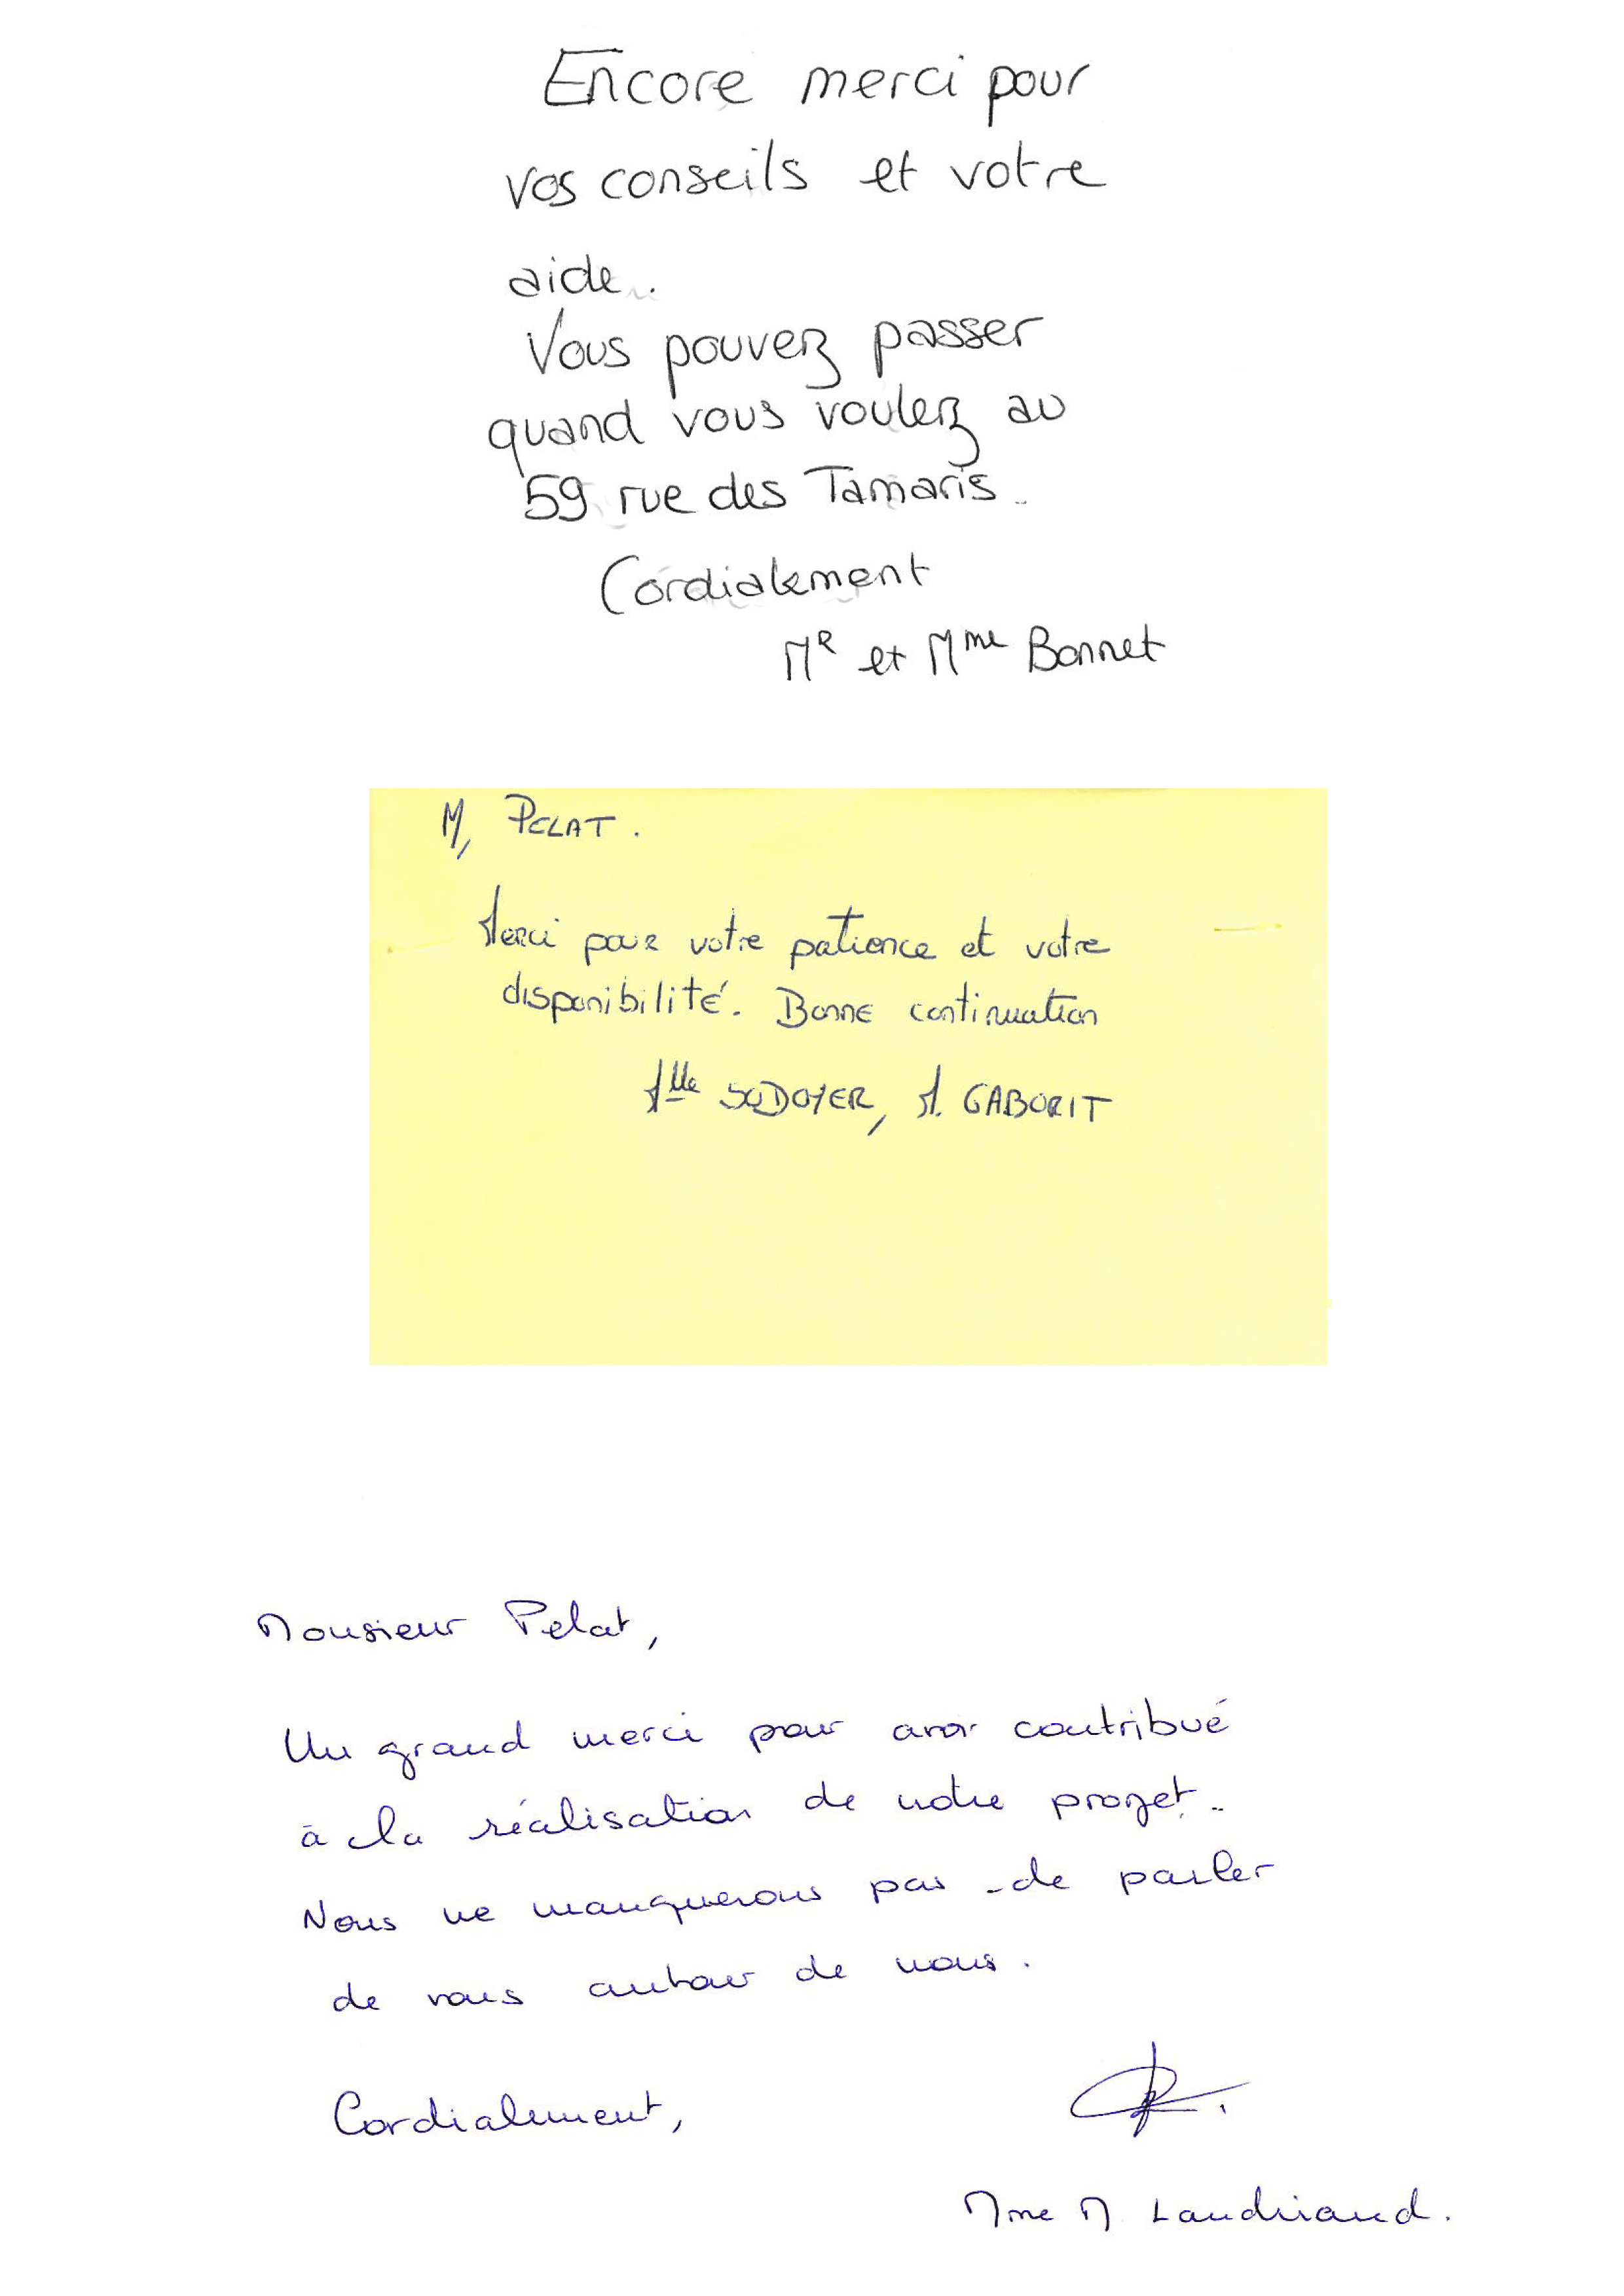 Encore merci pour
vos conseils et votre
aide.
Vous pouvez passer
quand vous voulez au
59 rue des Tamaris.
Cordialement
MR et Mme Bonnet
M, PELAT.
Merci pour votre patience et votre
disponibilité. Bonne continuation
Mlle , M. GABORIT
Monsieur Pelat,
Un grand merci pour avoir contribué
à la réalisation de notre projet.
Nous ne manquerons pas de parler
de vous autour de nous.
Cordialement,
Mme M Landriaud.